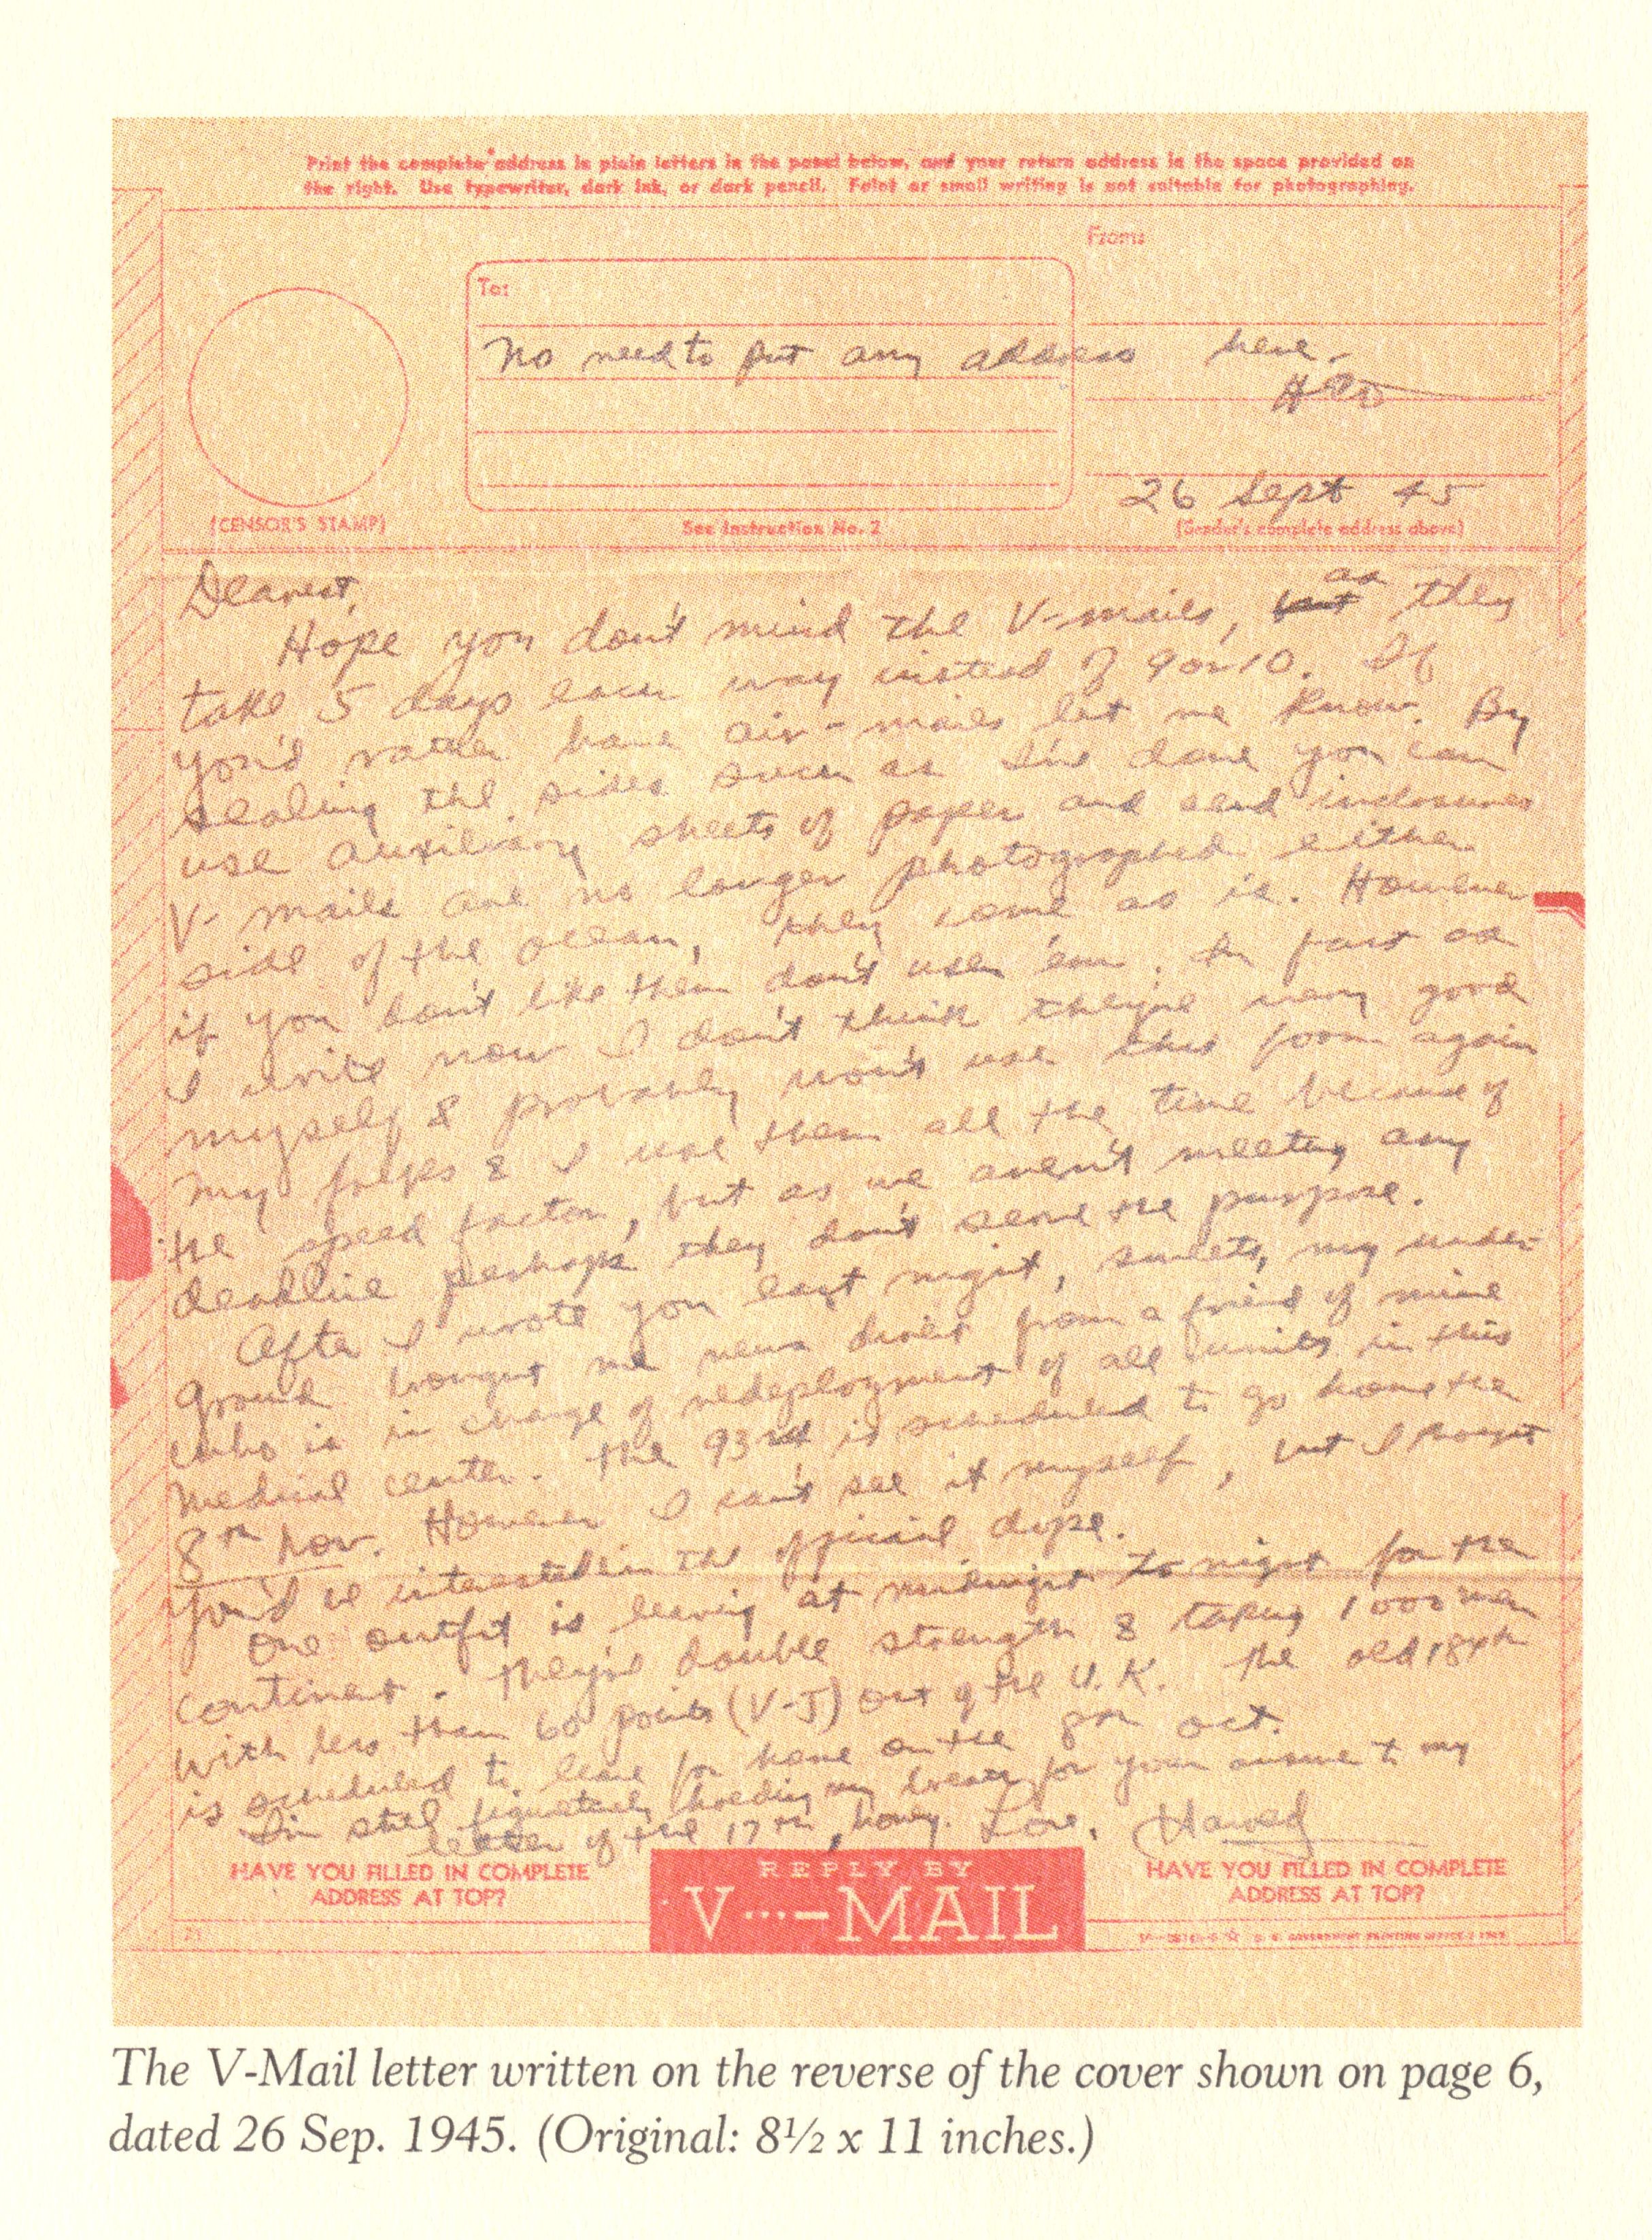 Print the complete address in plain letters in the panel below, and your return address in the space provided on
the right. Use typewriter, dark ink, or dark pencil. Faint or small writing is not suitable for photographing.
From:
To:
No need to put any address here.
26 Sept 45
(CENSOR'S STAMP)
See Instruction No. 2
(Sender's complete address above)
Dearest,
Hope you don't mind the V-mails, but as they
take 5 days each way instead of 9 or 10. If
you'd rather have air-mails let me know. By
sealing the sides such as I've done you can
use auxiliary sheets of paper and send inclosures
V-mails are no longer photographed either
side of the ocean, they come as is. However
if you don't like them don't use 'em. In fact as
I write now I don't think they're very good
myself & probably won't use this form again
My folks & I use them all the time because of
the speed factor, but as we aren't meeting any
deadline perhaps they don't serve the purpose.
After I wrote you last night, sweets, my under-
ground brought me news direct from a friend of mine
who is in charge of redeployment of all units in this
medical center. The 93rd is scheduled to go home the
8th Nov. However I can't see it myself, but I thought
you'd be interested in the official dope.
One outfit is leaving at midnight tonight for the
continent. They're double strength & taking 1000 men
with less than 60 points (V-J) out of the U.K. The old 18xth
is scheduled to leave for home on the 8th Oct.
I'm still figuratively holding my breath for your answer to my
letter of the 17th, honey. Love,
HAVE YOU FILLED IN COMPLETE
ADDRESS AT TOP?
REPLY BY
V···—MAIL
HAVE YOU FILLED IN COMPLETE
ADDRESS AT TOP?
U. S. GOVERNMENT PRINTING OFFICE
The V-Mail letter written on the reverse of the cover shown on page 6,
dated 26 Sep. 1945. (Original: 8½ x 11 inches.)